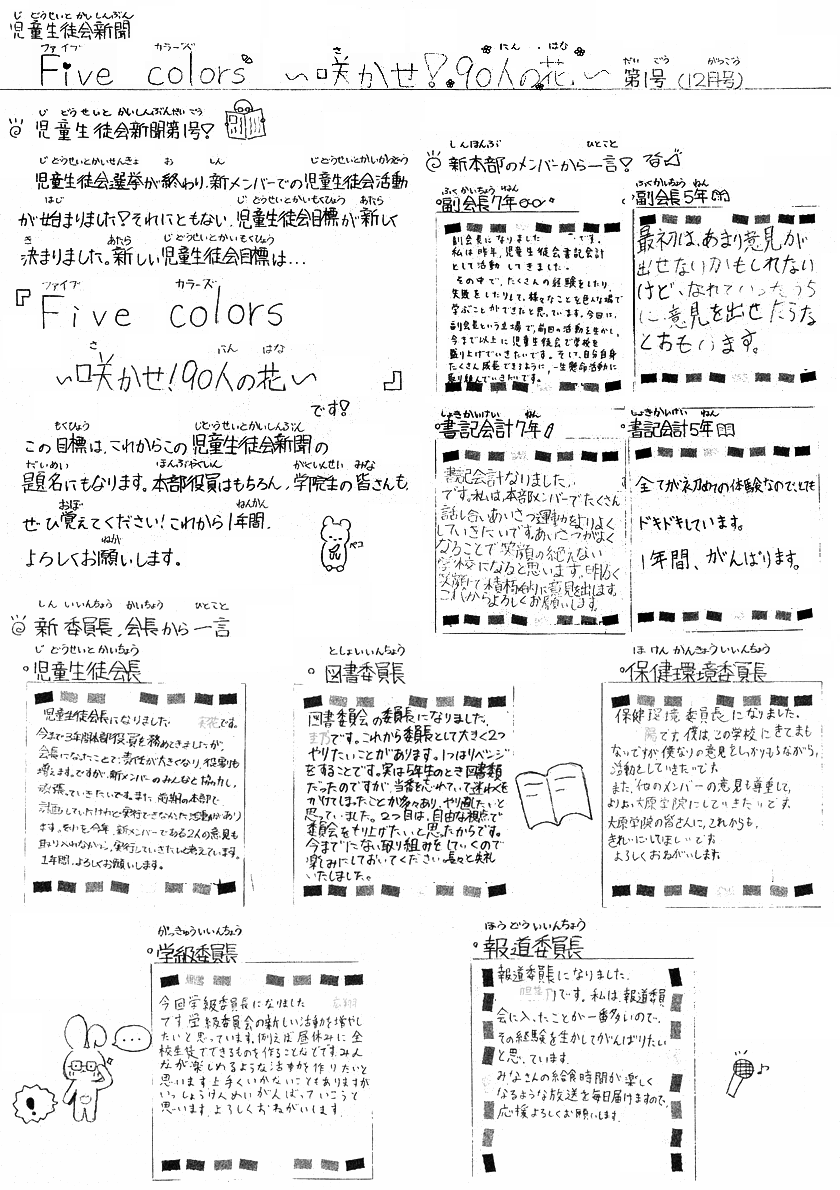 児童生徒会新聞
じどうせいとかいしんぶん
Five colors ～咲かせ！90人の花～ 第1号（12月号）
ファイブ カラーズ さ にん はな だい ごう がつごう
児童生徒会新聞第1号！
じどうせいとかいしんぶんだい ごう
児童生徒会選挙が終わり、新メンバーでの児童生徒会活動
が始まりました！それにともない、児童生徒会目標が新しく
決まりました。新しい児童生徒会目標は…
『Five colors
ファイブ カラーズ
～咲かせ！90人の花～』
さ にん はな
です！
この目標は、これからこの児童生徒会新聞の
題名にもなります。本部役員はもちろん、学院生の皆さんも、
ぜひ覚えてください！これから1年間、
よろしくお願いします。
ペコ
新本部のメンバーから一言！
しんほんぶ ひとこと
副会長7年
ふくかいちょう ねん
副会長になりました です。
私は昨年、児童生徒会書記会計
として活動してきました。
その中で、たくさんの経験をしたり、
失敗をしたりして、様々なことを色んな場で
学ぶことができたと思っています。今回は、
副会長という立場で、前回の活動を生かし、
今まで以上に児童生徒会で学校を
盛り上げていきたいです。そして、自分自身
たくさん成長できるように、一生懸命活動に
取り組んでいきたいです。
副会長5年
ふくかいちょう ねん
最初は、あまり意見が
出せないかもしれない
けど、なれていったうち
に、意見を出せたらな
とおもいます。
書記会計7年
しょきかいけい ねん
書記会計なりました、
です。私は、本部メンバーでたくさん
話し合いあいさつ運動をよりよく
していきたいです。あいさつがよく
なることで笑顔の絶えない
学校になると思います。明るく
笑顔で積極的に意見を出します。
これからよろしくお願いします。
書記会計5年
しょきかいけい ねん
全てが初めての体験なので、とても
ドキドキしています。
1年間、がんばります。
新委員長、会長から一言
しん いいんちょう かいちょう ひとこと
児童生徒会長
じどうせいとかいちょう
児童生徒会長になりました です。
今まで3年間本部役員を務めてきましたが、
会長になったことで、責任が大きくなり、役割も
増えます。ですが、新メンバーのみんなと協力し、
頑張っていきたいです。また、前期の本部で
計画していたけれど実行できなかった活動があり
ます。それを今年、新メンバーである2人の意見も
取り入れながら、実行していきたいと考えています。
1年間、よろしくお願いします。
図書委員長
としょいいんちょう
図書委員会の委員長になりました、
です。これから委員長として大きく2つ
やりたいことがあります。1つはリベンジ
をすることです。実は5年生のとき図書類
だったのですが、当番を忘れていて迷わくを
かけてしまったことが多々あり、やり直したいと
思っていました。2つ目は、自由な視点で
委員会をもり上げたいと思ったからです。
今までにない取り組みをしていくので
楽しみにしておいてください。長々と失礼
いたしました。
保健環境委員長
ほけんかんきょういいんちょう
保健環境委員長になりました。
です。僕は、この学校にきてまも
ないですが僕なりの意見をしっかりもちながら、
活動としていきたいです。
また、他のメンバーの意見も尊重して、
よりよい大原学院にしていきたいです。
大原学院の皆さんに、これからも、
きれいにしてほしいです。
よろしくおねがいします。
学級委員長
がっきゅういいんちょう
今回学級委員長になりました
です学級委員会の新しい活動を増やし
たいと思っています。例えば昼休みに全
校生徒でできるものを作ることなどです。みん
なが楽しめるような活動を作りたいと
思います上手くいかないこともありますが
いっしょうけんめいがんばっていこうと
思います。よろしくおねがいします。
報道委員長
ほうどういいんちょう
報道委員長になりました、
です。私は、報道委員
会に入ったことが一番多いので、
その経験を生かしてがんばりたい
と思っています。
みなさんの給食時間が楽しく
なるような放送を毎日届けますので、
応援よろしくお願いします。